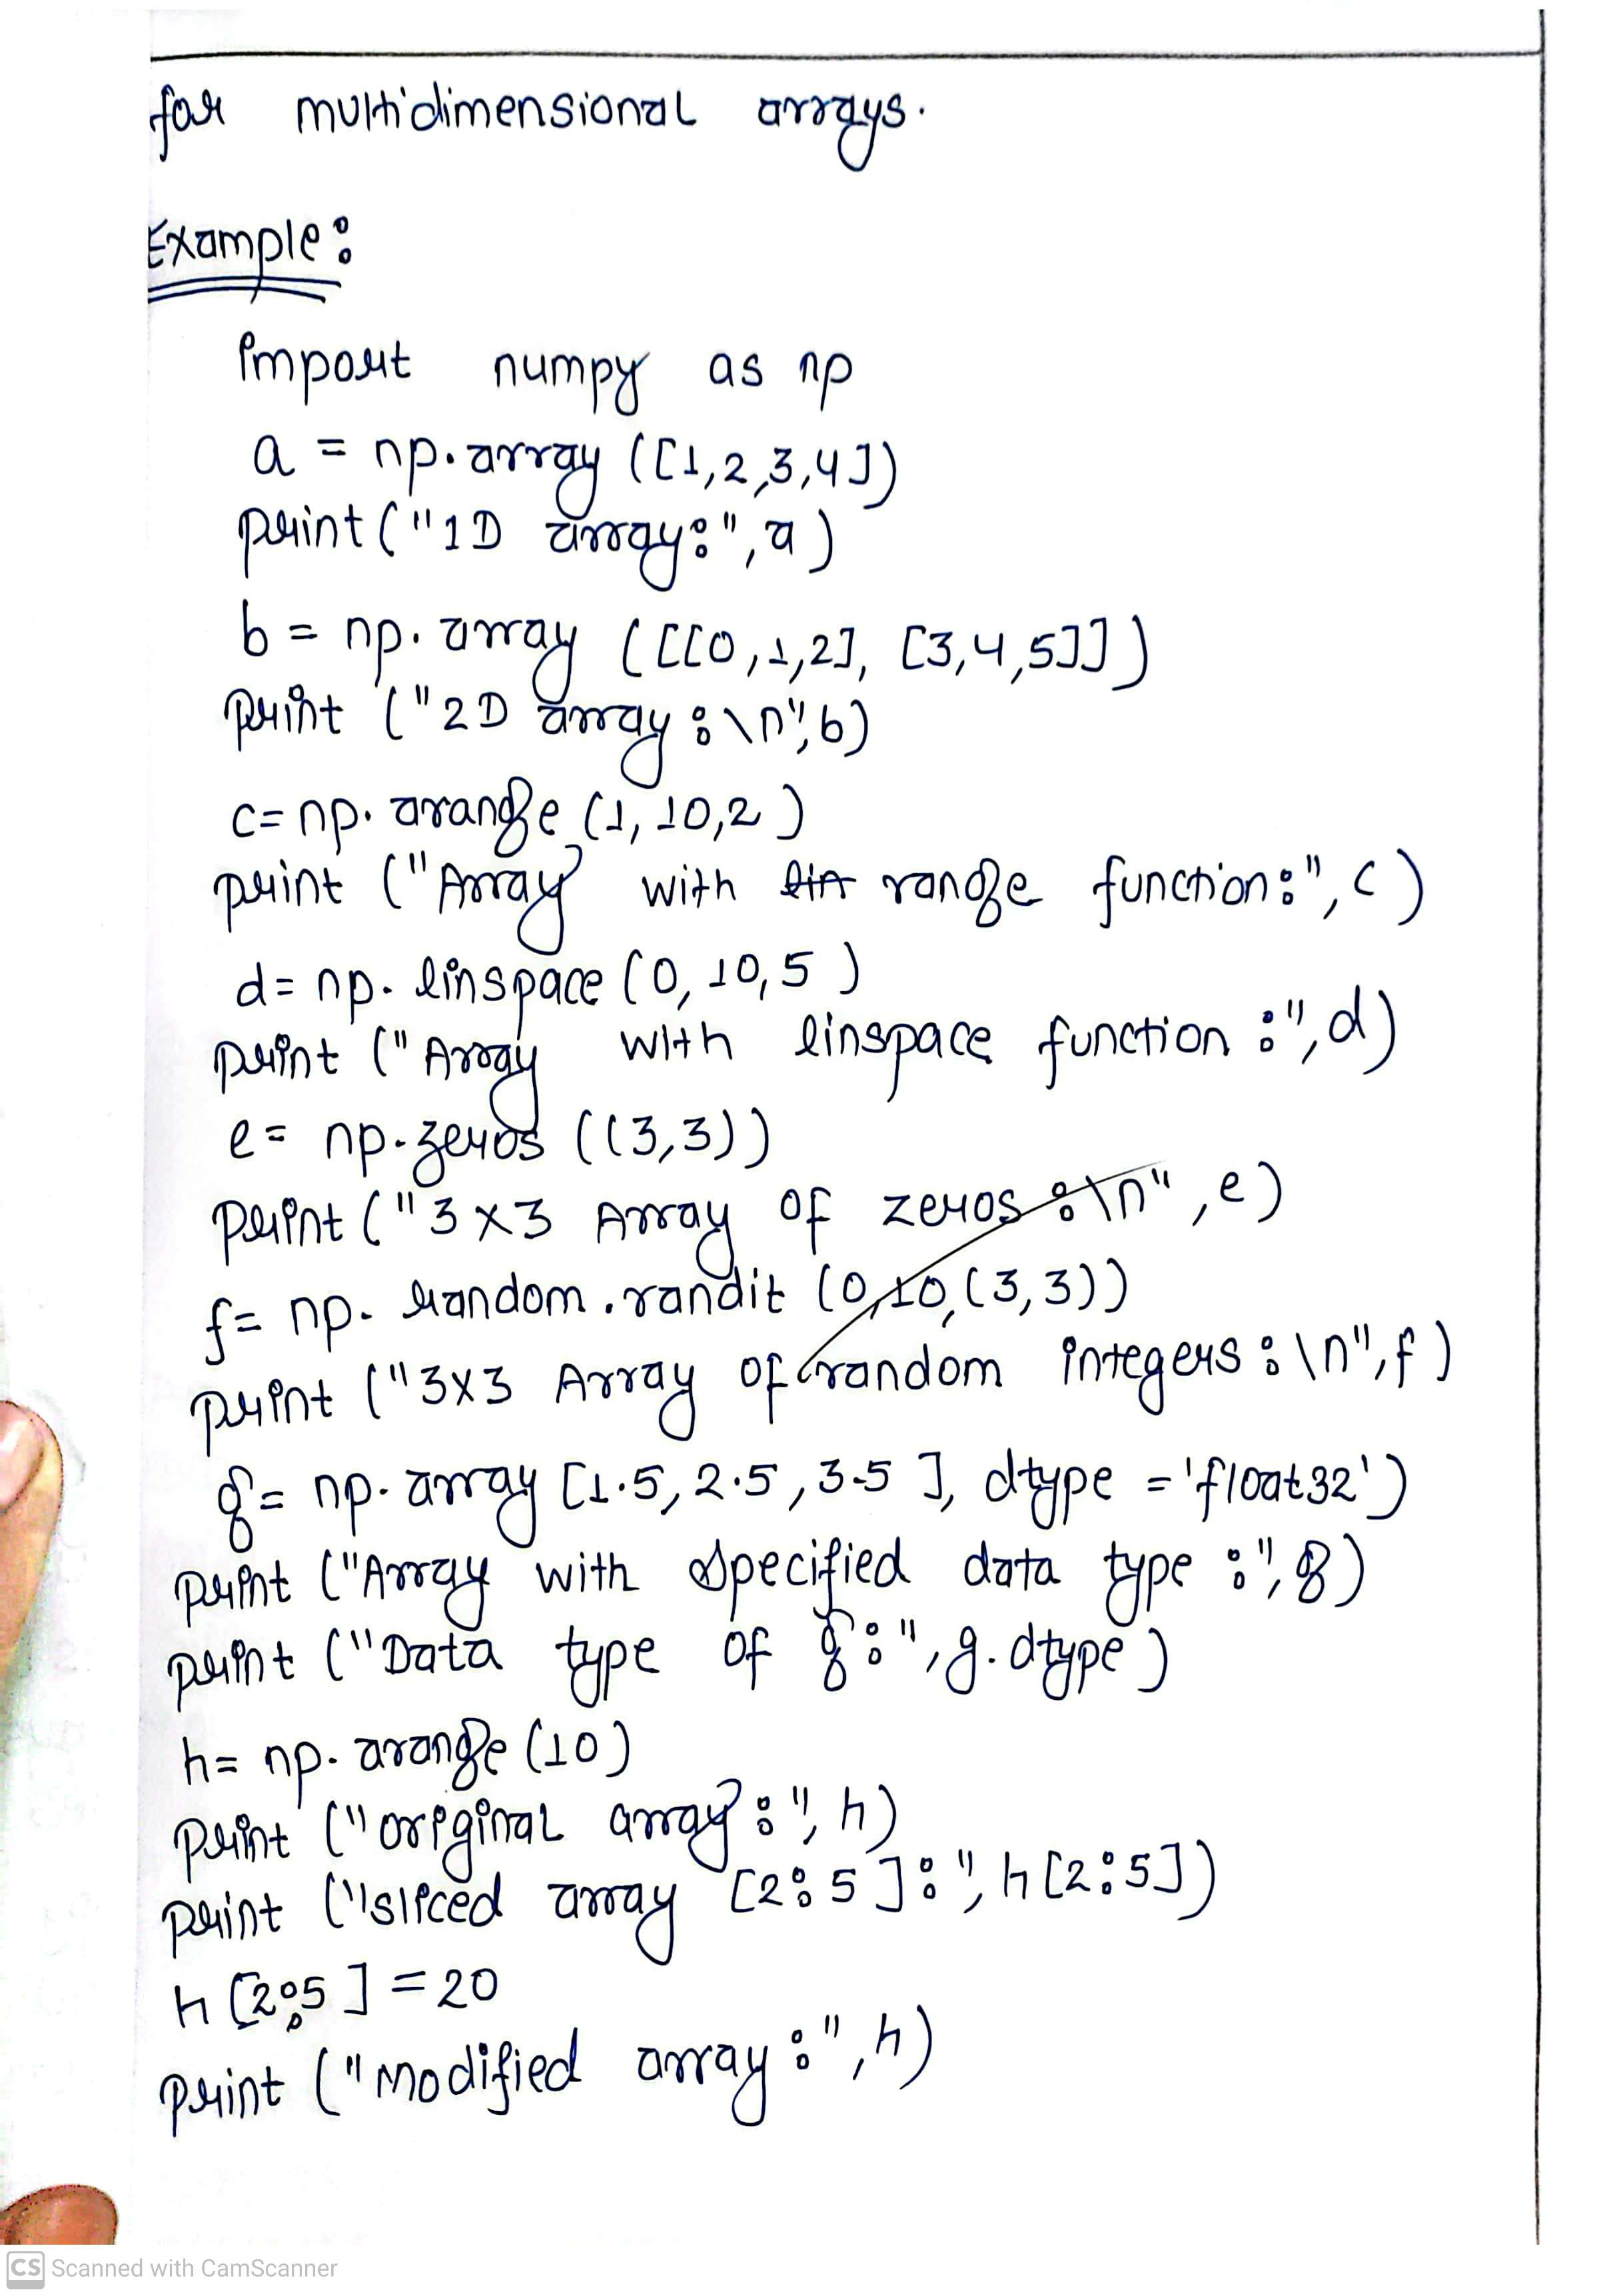 for multidimensional arrays.
Example:
import numpy as np
a = np.array ([1,2,3,4])
print ("1D array:", a)
b = np.array ([[0,1,2], [3,4,5]])
print ("2D array:\n", b)
c= np.arange (1, 10,2 )
print ("Array with range function:", c )
d= np. linspace (0, 10, 5 )
print (" Array with linspace function :", d)
e = np.zeros ((3,3))
print ("3 x3 Array of zeros :\n" , e)
f= np. random . randit (0,10, (3,3))
print ("3x3 Array of random integers : \n", f )
g= np. array [1.5, 2.5, 3.5 ], dtype = 'float32')
print ("Array with specified data type :", g)
print ("Data type of g:", g.dtype )
h= np. arange (10)
print ("original array :", h)
print ("sliced array [2:5]:", h[2:5])
h [2:5 ] = 20
print ("modified array :", h)
CS Scanned with CamScanner